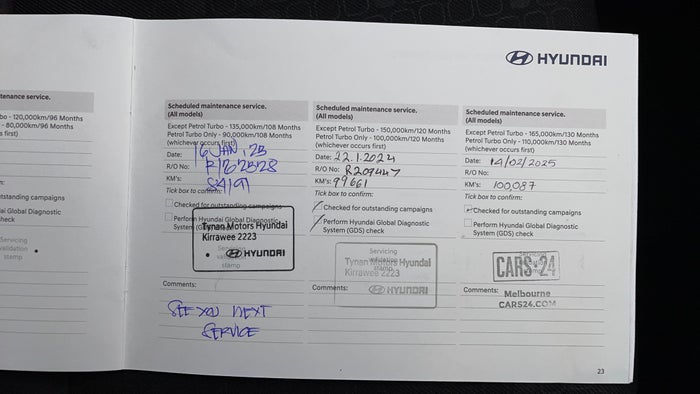 HYUNDAI
tenance service.
- 120,000km/96 Months
- 80,000km/96 Months
s first)
utstanding campaigns
ai Global Diagnostic
heck
Servicing
validation
stamp
Scheduled maintenance service.
(All models)
Except Petrol Turbo - 135,000km/108 Months
Petrol Turbo Only - 90,000km/108 Months
(whichever occurs first)
Date: 16 JAN, 23
R/O No:
KM's: 84191
Tick box to confirm:
Checked for outstanding campaigns
Perform Hyundai Global Diagnostic
System (GDS) check
Tynan Motors Hyundai
Kirrawee 2223
Servicing
validation
stamp
HYUNDAI
Comments:
SEE YOU NEXT
SERVICE
Scheduled maintenance service.
(All models)
Except Petrol Turbo - 150,000km/120 Months
Petrol Turbo Only - 100,000km/120 Months
(whichever occurs first)
Date: 22.1.2024
R/O No: R209447
KM's: 99661
Tick box to confirm:
Checked for outstanding campaigns
Perform Hyundai Global Diagnostic
System (GDS) check
Servicing
validation
stamp
Tynan Motors Hyundai
Kirrawee 2223
HYUNDAI
Comments:
Scheduled maintenance service.
(All models)
Except Petrol Turbo - 165,000km/130 Months
Petrol Turbo Only - 110,000km/130 Months
(whichever occurs first)
Date: 14/02/2025
R/O No:
KM's: 100,087
Tick box to confirm:
Checked for outstanding campaigns
Perform Hyundai Global Diagnostic
System (GDS) check
CARS24
Comments:
Melbourne
CARS24.COM
23